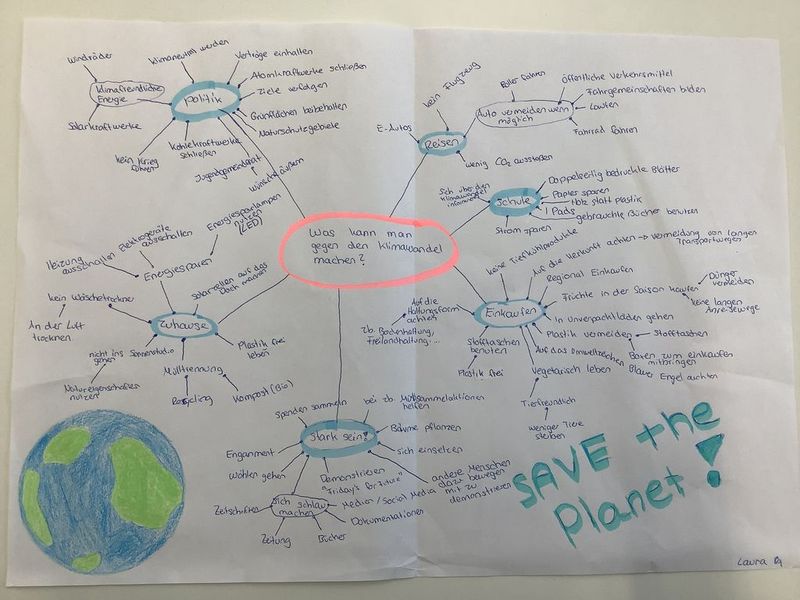 Windräder
klimaneutral werden
Verträge einhalten
Klimafreundliche
Energie
Politik
Atomkraftwerke schließen
Ziele verfolgen
Grünflächen beibehalten
Naturschutzgebiete
Solarkraftwerke
kein Krieg
führen
Kohlekraftwerke
schließen
Jugendgemeinderat
Wünsche äußern
kein Flugzeug
Roller fahren
öffentliche Verkehrsmittel
Fahrgemeinschaften bilden
Auto vermeiden wenn
möglich
Laufen
Fahrrad fahren
E-Autos
Reisen
wenig CO2 ausstoßen
Sich über den
Klimawandel
informieren
Schule
Doppelseitig bedruckte Blätter
Papier sparen
Holz statt Plastik
I Pads
gebrauchte Bücher benutzen
Strom sparen
Was kann man
gegen den Klimawandel
machen?
Heizung
ausschalten
Elektrogeräte
ausschalten
Energiesparlampen
nutzen
(LED)
Energiesparen
Solarzellen auf das
Dach machen
kein Wäschetrockner
An der Luft
trocknen
Zuhause
nicht ins
Sonnenstudio
gehen
Natureigenschaften
nutzen
Mülltrennung
Recycling
Kompost (Bio)
Plastik frei
leben
keine Tiefkühlprodukte
Auf die Herkunft achten → Vermeidung von langen
Transportwegen
Regional Einkaufen
Früchte in der Saison kaufen
Dünger
vermeiden
keine langen
Anreisewege
Einkaufen
In unverpacktläden gehen
Plastik vermeiden
Stofftaschen
Boxen zum einkaufen
mitbringen
Auf das Umweltzeichen
Blauer Engel achten
Auf die
Haltungsform
achten
zb. Bodenhaltung,
Freilandhaltung...
Stofftaschen
benutzen
Plastik frei
Vegetarisch leben
Tierfreundlich
weniger Tiere
sterben
Spenden sammeln
bei zb. Müllsammelaktionen
helfen
Bäume pflanzen
Stark sein!
sich einsetzen
Engament
Wählen gehen
Demonstrieren
"Friday's for future"
andere Menschen
dazu bewegen
mit zu
demonstrieren
Sich schlau
machen
Medien / Social Media
Dokumentationen
Zeitschriften
Zeitung
Bücher
SAVE the
planet!
Laura